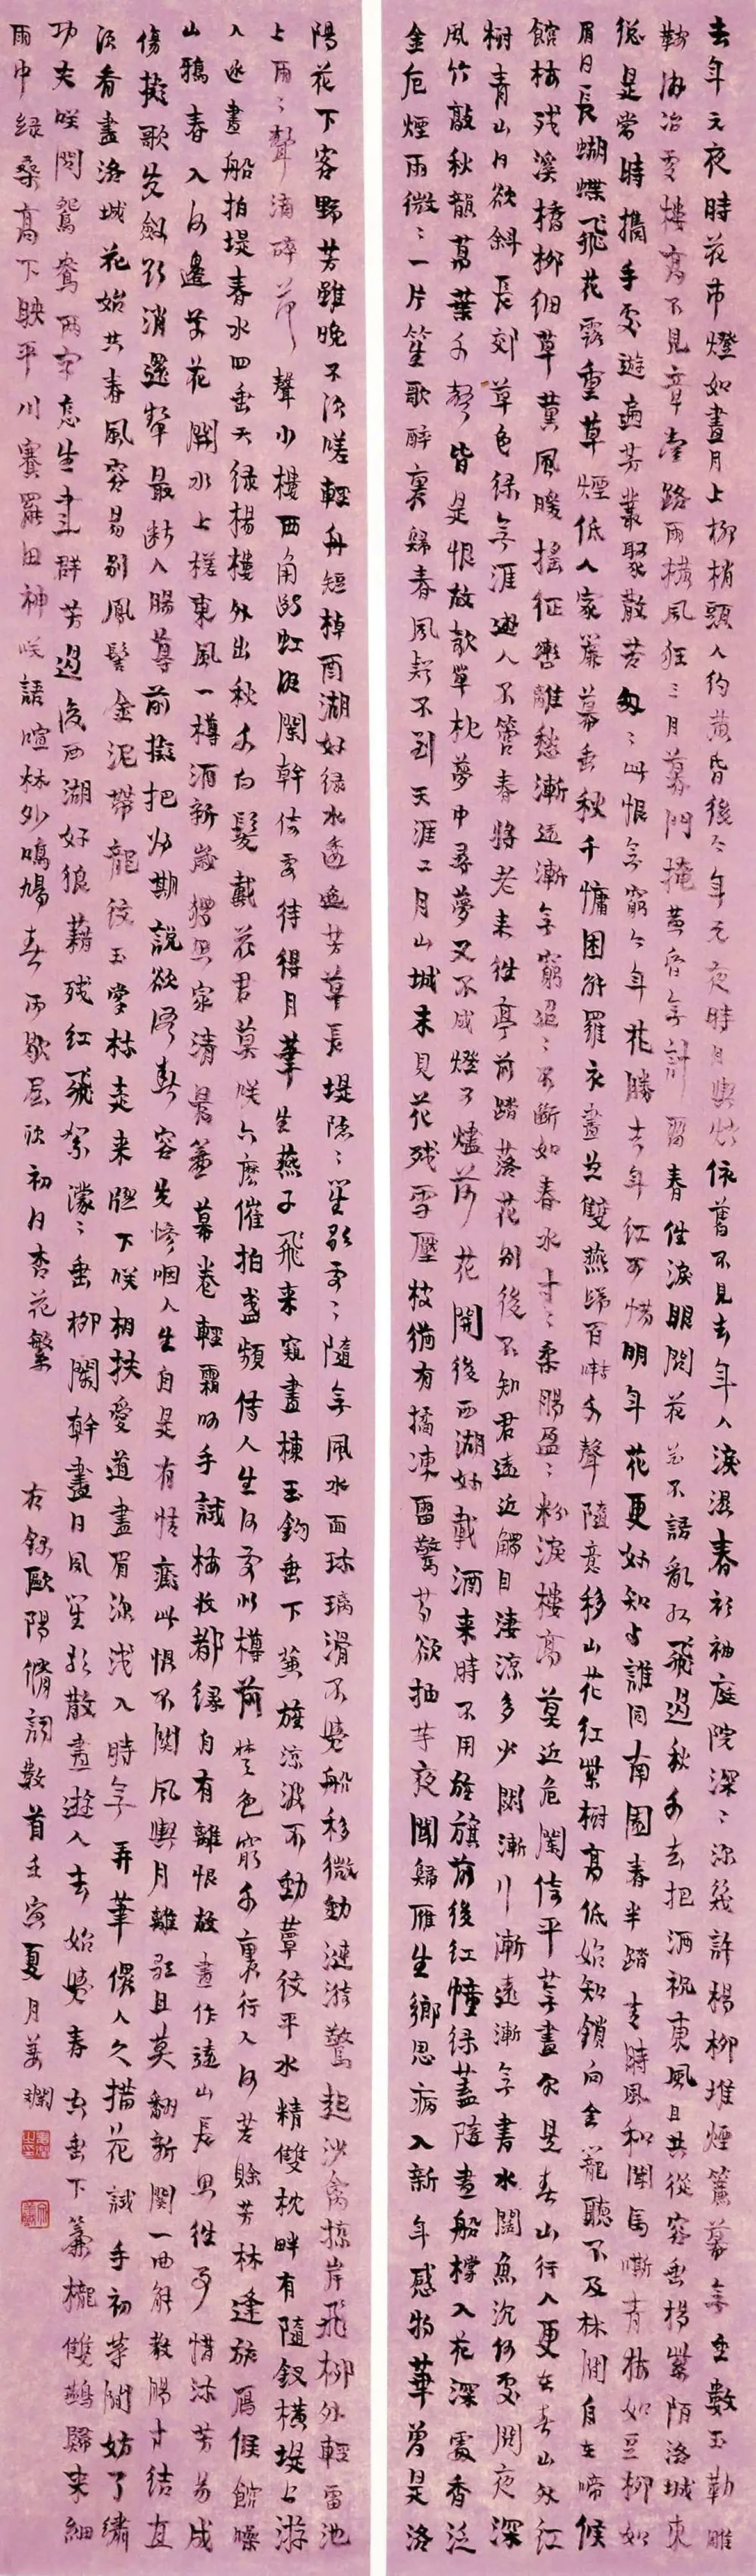 去年元夜時花市燈如晝月上柳梢頭人約黃昏後今年元夜時月與燈依舊不見去年人淚濕春衫袖庭院深〻深幾許楊柳堆煙簾幕無重數玉勒雕
鞍游冶處樓高不見章臺路雨橫風狂三月暮門掩黃昏無計留春住淚眼問花花不語亂紅飛過秋千去把酒祝東風且共從容垂楊紫陌洛城東
總是當時攜手處遊遍芳叢聚散苦匆〻此恨無窮今年花勝去年紅可惜明年花更好知與誰同南園春半踏青時風和聞馬嘶青梅如豆柳如
眉日長蝴蝶飛花露重草煙低人家簾幕垂秋千慵困解羅衣畫梁雙燕歸百囀千聲隨意移山花紅紫樹高低始知鎖向金籠聽不及林間自在啼候
館梅殘溪橋柳細草薰風暖搖征轡離愁漸遠漸無窮迢〻不斷如春水寸〻柔腸盈〻粉淚樓高莫近危闌倚平蕪盡處是春山行人更在春山外紅
樹青山日欲斜長郊草色綠無涯遊人不管春將老來往亭前踏落花別後不知君遠近觸目淒涼多少悶漸行漸遠漸無書水闊魚沉何處問夜深
風竹敲秋韻萬葉千聲皆是恨故欹單枕夢中尋夢又不成燈又燼荷花開後西湖好載酒來時不用旌旗前後紅幢綠蓋隨畫船撐入花深處香泛
金卮煙雨微〻一片笙歌醉裏歸春風疑不到天涯二月山城未見花殘雪壓枝猶有橘凍雷驚筍欲抽芽夜聞歸雁生鄉思病入新年感物華曾是洛
陽花下客野芳雖晚不須嗟輕舟短棹西湖好綠水逶迤芳草長堤隱〻笙歌處〻隨無風水面琉璃滑不覺船移微動漣漪驚起沙禽掠岸飛柳外輕雷池
上雨〻聲滴碎荷聲小樓西角斷虹明闌幹倚處待得月華生燕子飛來窺畫棟玉鉤垂下簾旌涼波不動簟紋平水精雙枕畔有墮釵橫堤上游
人逐畫船拍堤春水四垂天綠楊樓外出秋千白髮戴花君莫咲六麼催拍盞頻傳人生何處似樽前楚色窮千里行人何苦賒芳林逢旅雁候館噪
山鴉春入河邊草花開水上槎東風一樽酒新歲獨思家清晨簾幕卷輕霜呵手試梅妝都緣自有離恨故畫作遠山長思往事惜流芳易成
傷擬歌先斂欲笑還顰最斷人腸尊前擬把歸期說欲語春容先慘咽人生自是有情癡此恨不關風與月離歌且莫翻新闋一曲能教腸寸結直
須看盡洛城花始共春風容易別鳳髻金泥帶龍紋玉掌梳走來窗下咲相扶愛道畫眉深淺入時無弄筆偎人久描花試手初等閒妨了繡
功夫咲問鴛鴦兩字怎生書群芳過後西湖好狼藉殘紅飛絮濛〻垂柳闌幹盡日風笙歌散盡遊人去始覺春空垂下簾櫳雙燕歸來細
雨中綠桑高下映平川賽罷田神咲語喧林外鳴鳩春雨歇屋頭初日杏花繁 右錄歐陽脩詞數首壬寅夏月姜瀾